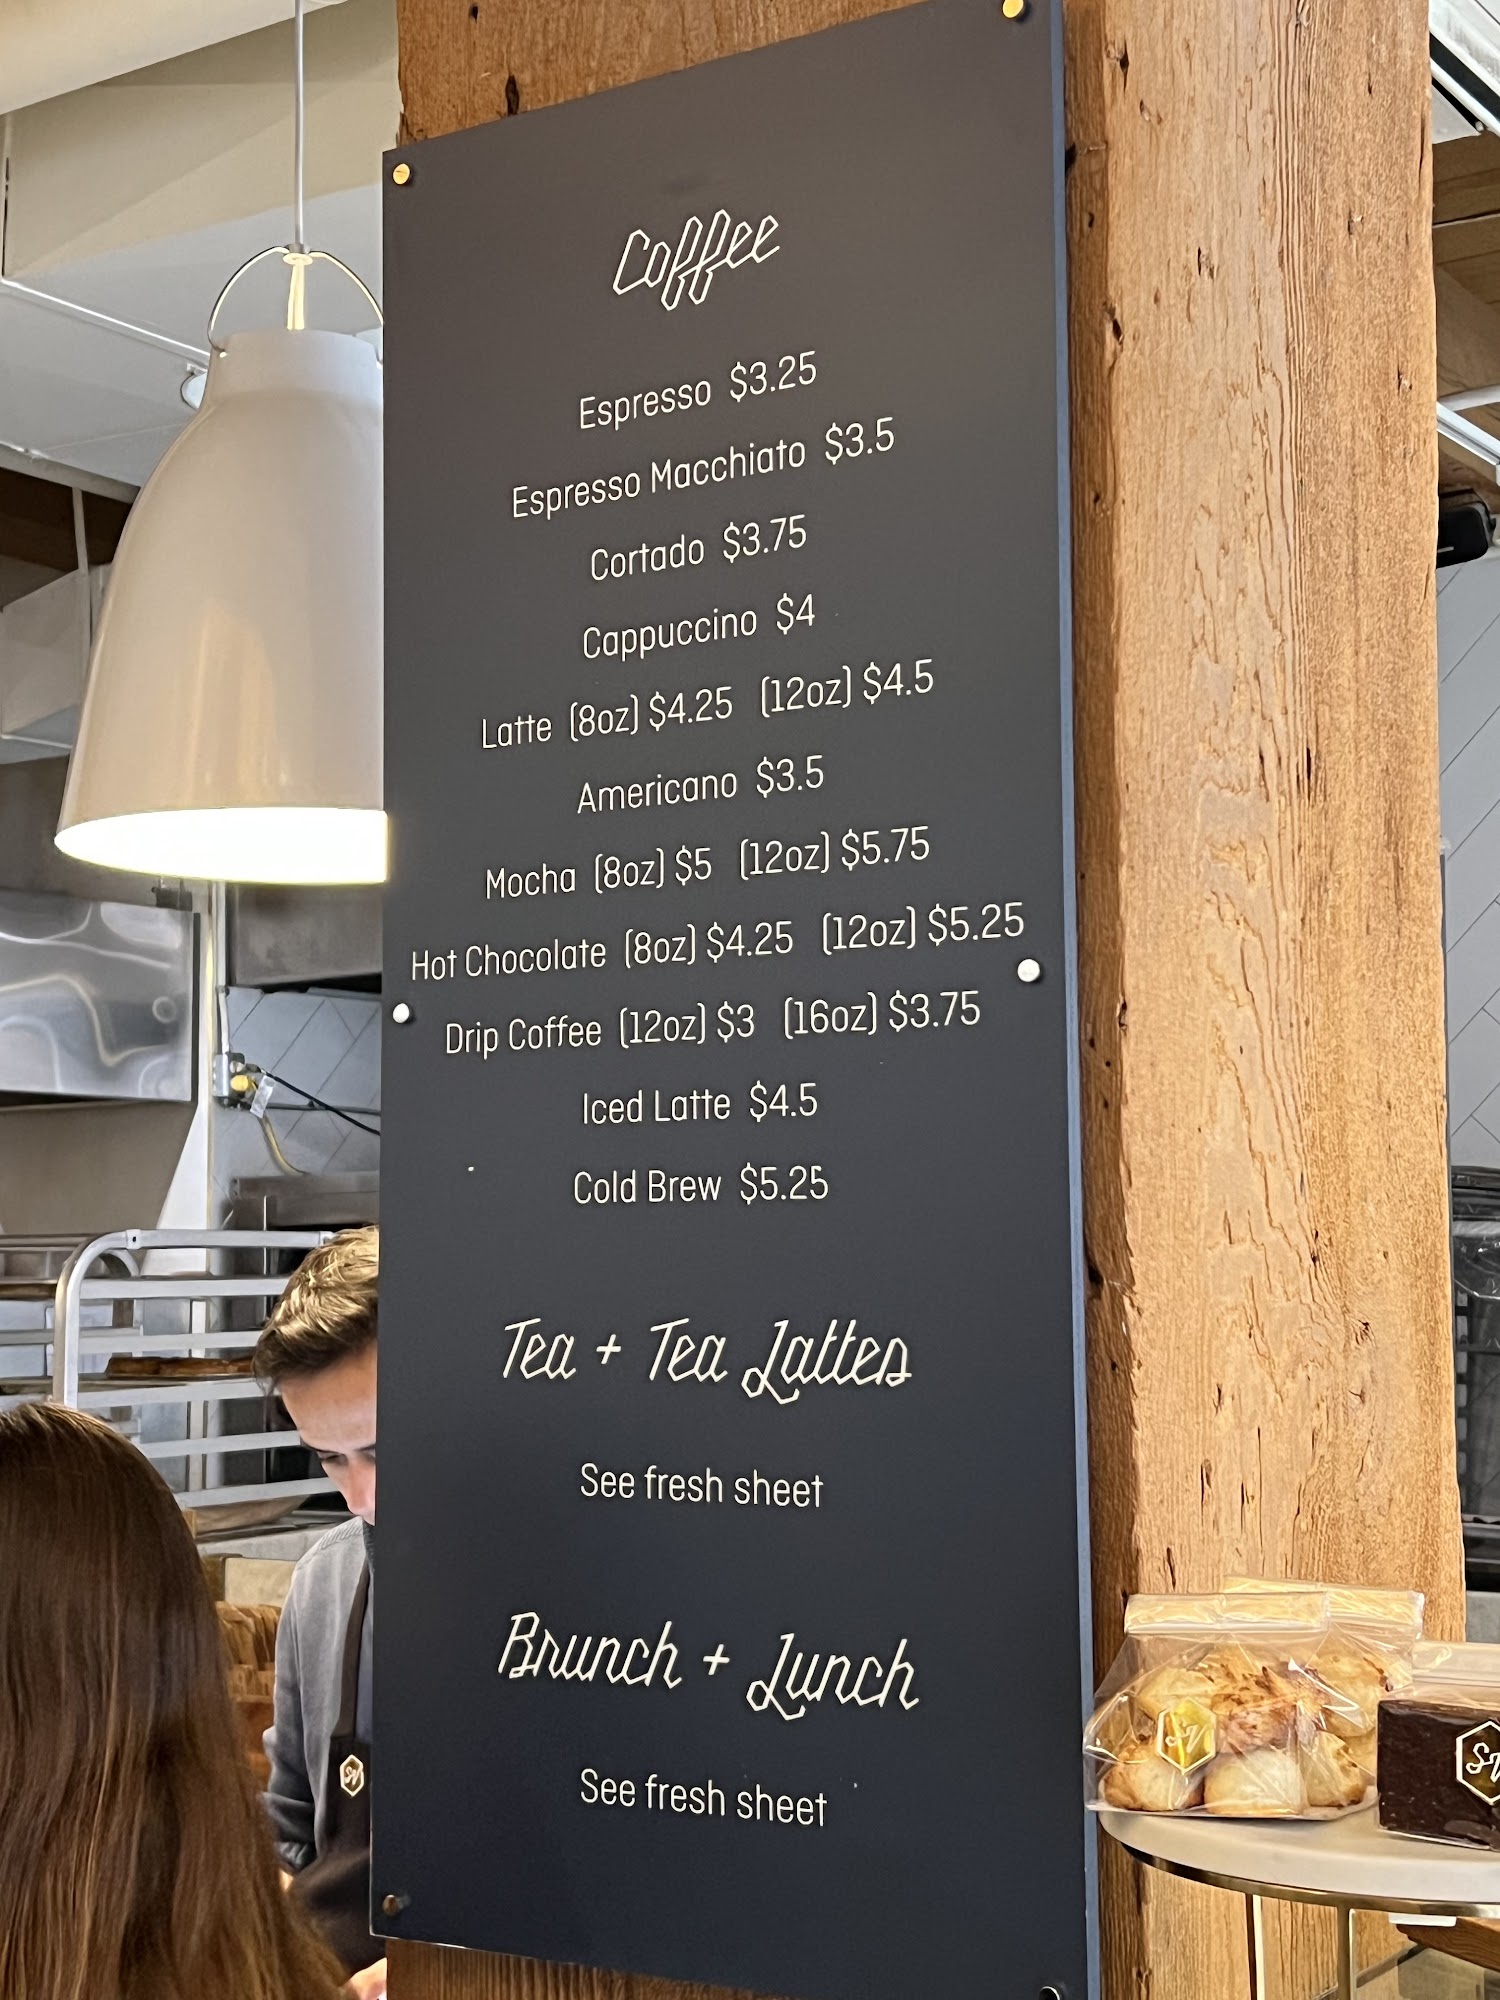 Coffee
Espresso $3.25
Espresso Macchiato $3.5
Cortado $3.75
Cappuccino $4
Latte (8oz) $4.25 (12oz) $4.5
Americano $3.5
Mocha (8oz) $5 (12oz) $5.75
Hot Chocolate (8oz) $4.25 (12oz) $5.25
Drip Coffee (12oz) $3 (16oz) $3.75
Iced Latte $4.5
Cold Brew $5.25
Tea + Tea Lattes
See fresh sheet
Brunch + Lunch
See fresh sheet
SV
SV
SV